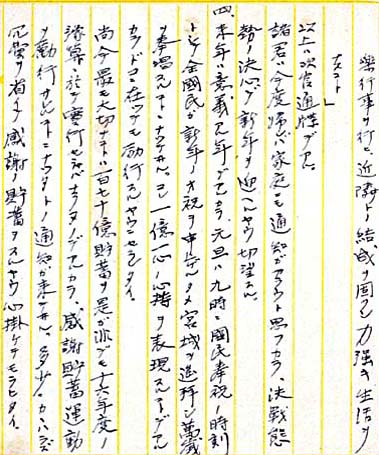 楽行事ヲ行ヒ、近隣ト結成ヲ固クシ力強キ生活ヲ
ナスコト」
以上ハ次官通牒デアル。
諸君ハ今度帰レバ家庭ニモ通知ガアラウト思フカラ、決戦態
勢ノ決心デ新年ヲ迎ヘルヤウ切望スル。
四、来年ハ意義アル年デアルカラ、元旦ハ九時ニ國民奉祝ノ時刻
トシテ全國民ガ新年ノ祝ヲ申上ゲルタメ宮城ヲ遥拝シ萬歳
ヲ奉唱スルコトニナッテヰル。コレハ一億一心ノ心持ヲ表現スルコトデアル
カラドコニ在ッテモ励行スルヤウニセラレタイ。
尚今最モ大切ナコトハ百七十億貯蓄ヲ是が非デモ十六年度ノ
終幕ニ於テ実行セネバナラヌノデアルカラ、感謝貯蓄運動
ヲ励行サレルコトニナッタトノ通知ガ来テヰル。多少ニカカハラズ
冗費ヲ省キ感謝ノ貯蓄ヲスルヤウ心掛ケテモラヒタイ。